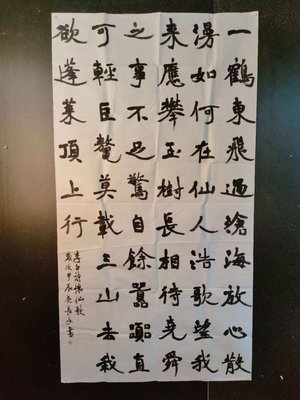 一鶴東飛過滄海放心散
漫知何在仙人浩歌望我
來應攀玉樹長相待堯舜
之事不足驚自餘囂囂直
可輕巨鰲莫載三山去我
欲蓬萊頂上行
李白詩懷仙歌
歲次甲辰吳長書